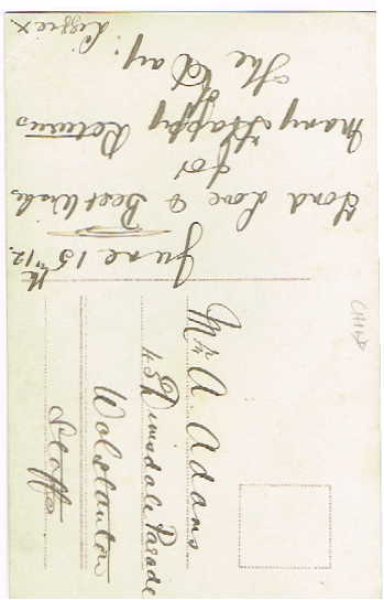 June 15th/12.
Fond Love & Best Wishes
for
Many Happy Returns
of
The Day:
Lizzie x
Mr A. Adams
43 Dimsdale Parade
Wolstanton
Staffs
CHILD